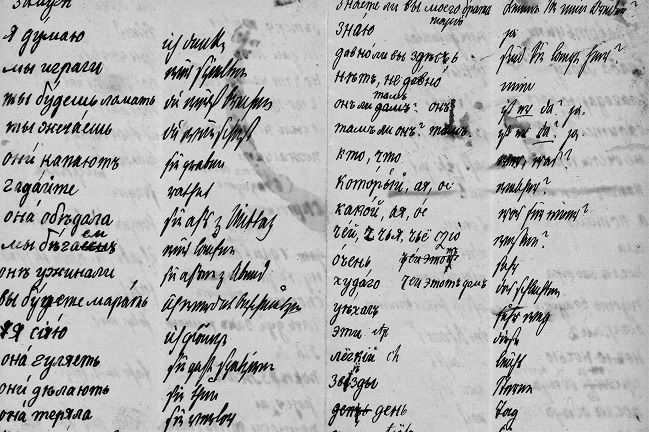 я думаю ich denke
мы играли wir spielten
ты будешь ломать du wirst brechen
ты
они sie graben
гадайте rathet
она обѣдала sie aß z Mittag
мы бѣгаем wir laufen
онѣ ужинали sie aßen z Abend
вы будете марать ihr werdet beschmutzen
я сіяю ich glänze
она гуляетъ sie geht spazieren
они дѣлаютъ sie thun
она теряла sie verlor
знаете ли вы моего брата
знаю ja
давно ли вы здѣсь sind Sie lange hier?
нѣтъ, не давно nein
онъ ли тамъ? онъ ist er da? ja.
тамъ ли онъ? тамъ ist er da? ja.
кто, что wer, was?
который, ая, ое welcher?
какой, ая, ое was für einer?
чей, чья, чьё wessen?
очень sehr
худаго des schlechten
уѣхалъ fuhr weg
эти diese
лёгкій leicht
звѣзды Sterne
день день Tag